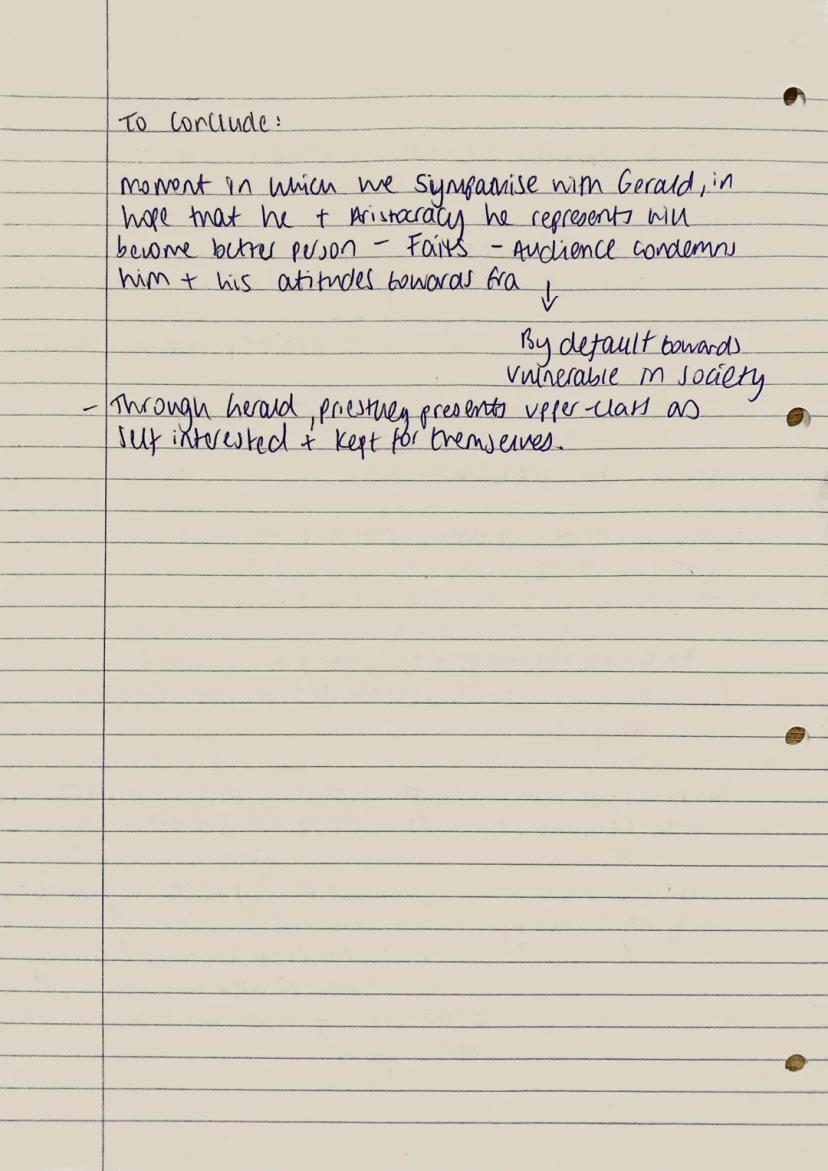 To Conclude:
moment in which we sympamise with Gerald, in
hope that he + Aristocracy he represents will
become better person - Fails - Audience condemns
him + his atitudes towards Eva ↓
By default towards
vulnerable in society
- Through Gerald, priestley presents upper-class as
self interested + kept for themselves.